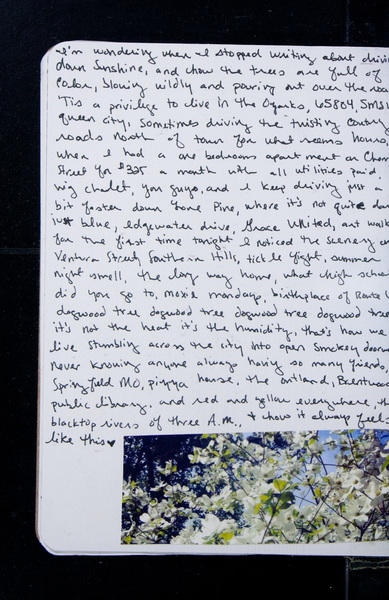 I'm wondering when I stopped writing about drivi
down Sunshine, and how the trees are full of
color, blowing wildly and pouring out over the roa
'Tis a privilege to live in the Ozarks, 65804, SMSU
queen city, sometimes driving the twisting country
roads north of town for what seems hours,
when I had a one bedroom apartment on Cher
Street for $325 a month with all utilities paid,
wing chalet, you guys, and I keep driving just a
bit faster down Lone Pine, where it's not quite dar
just blue, Edgewater drive, Grace United, art walk
for the first time tonight I noticed the scenery on
Ventura Street, Southern Hills, tickle fight, summer
night smell, the long way home, what high scho
did you go to, moxie mondays, birthplace of Route 6
dogwood tree dogwood tree dogwood tree dogwood tree
it's not the heat it's the humidity, that's how we
live stumbling across the city into open smokey doors
never knowing anyone always having so many friends,
Springfield MO, pizza house, the outland, Brentwoo
public library, and red and yellow everywhere, th
blacktop rivers of three A.M., + how it always feel
like this ♥